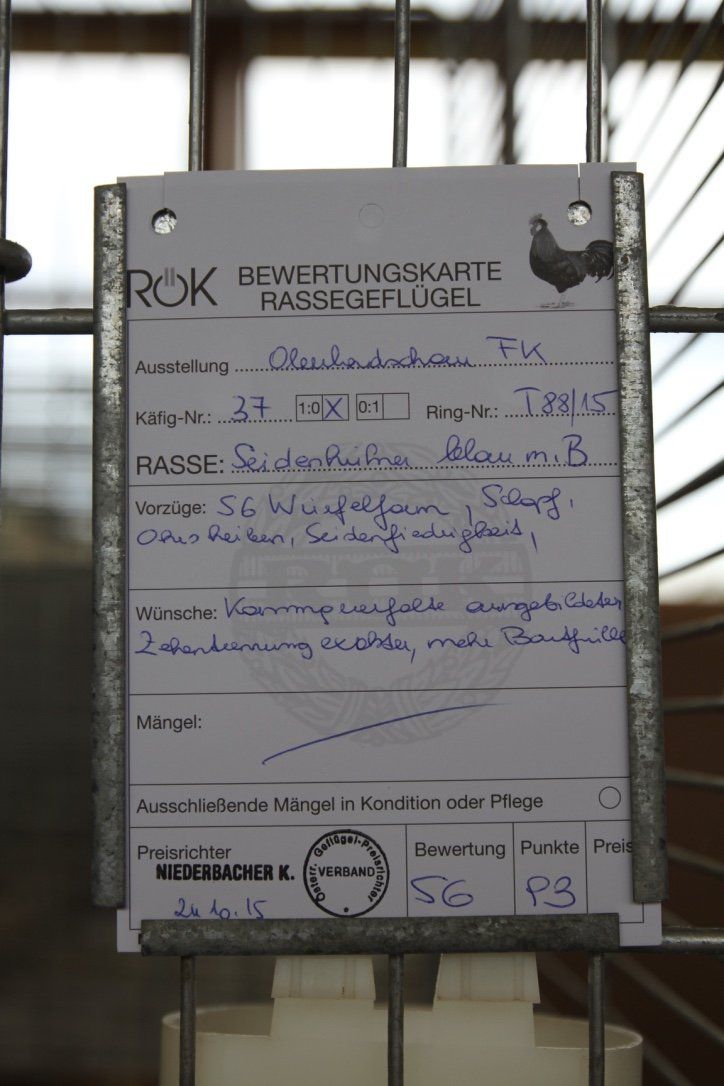 RÖK BEWERTUNGSKARTE
RASSEGEFLÜGEL
Ausstellung FK
Käfig-Nr.: 37 1:0 X 0:1 Ring-Nr.: T88/15
RASSE: Seidenhühner blau m. B
Vorzüge: SG Würfelform, Schopf,
Ohrscheiben, Seidenfiedrigkeit,
Wünsche: ausgebildeter
Zehentrennung exakter, mehr Bartfülle
Mängel:
Ausschließende Mängel in Kondition oder Pflege
Preisrichter
NIEDERBACHER K.
Österr. Geflügel-Preisrichter
VERBAND
Bewertung Punkte Preis
.10.15 SG 93